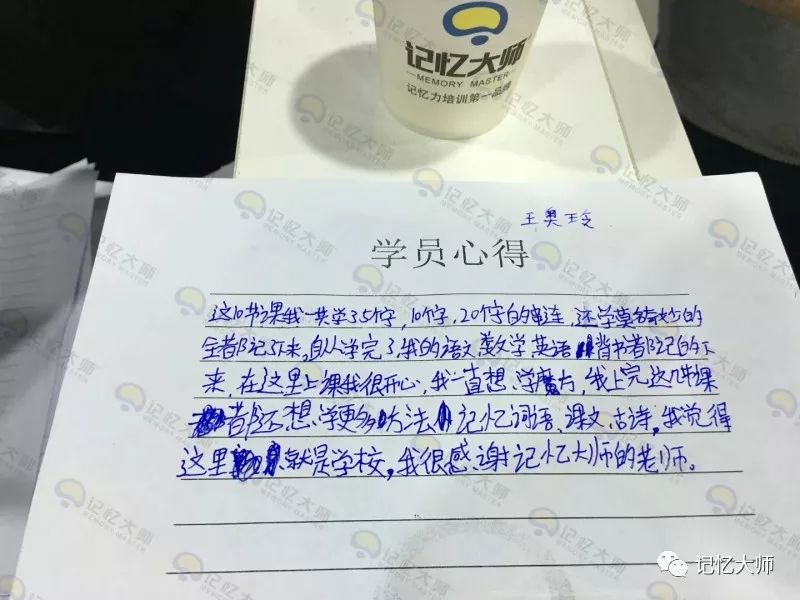 记忆大师
MEMORY MASTER
记忆力培训第一品牌
王奥玲
学员心得
这10节课我一共学35个字,10个字,20个字的串连,还学莫奇妙的
全都记下来,自从学完了,我的语文数学英语背书都记的下
来,在这里上课我很开心,我一直想学魔方,我上完这几节课
都还想学更多方法记忆词语、课文、古诗,我觉得
这里就是学校,我很感谢记忆大师的老师。
记忆大师